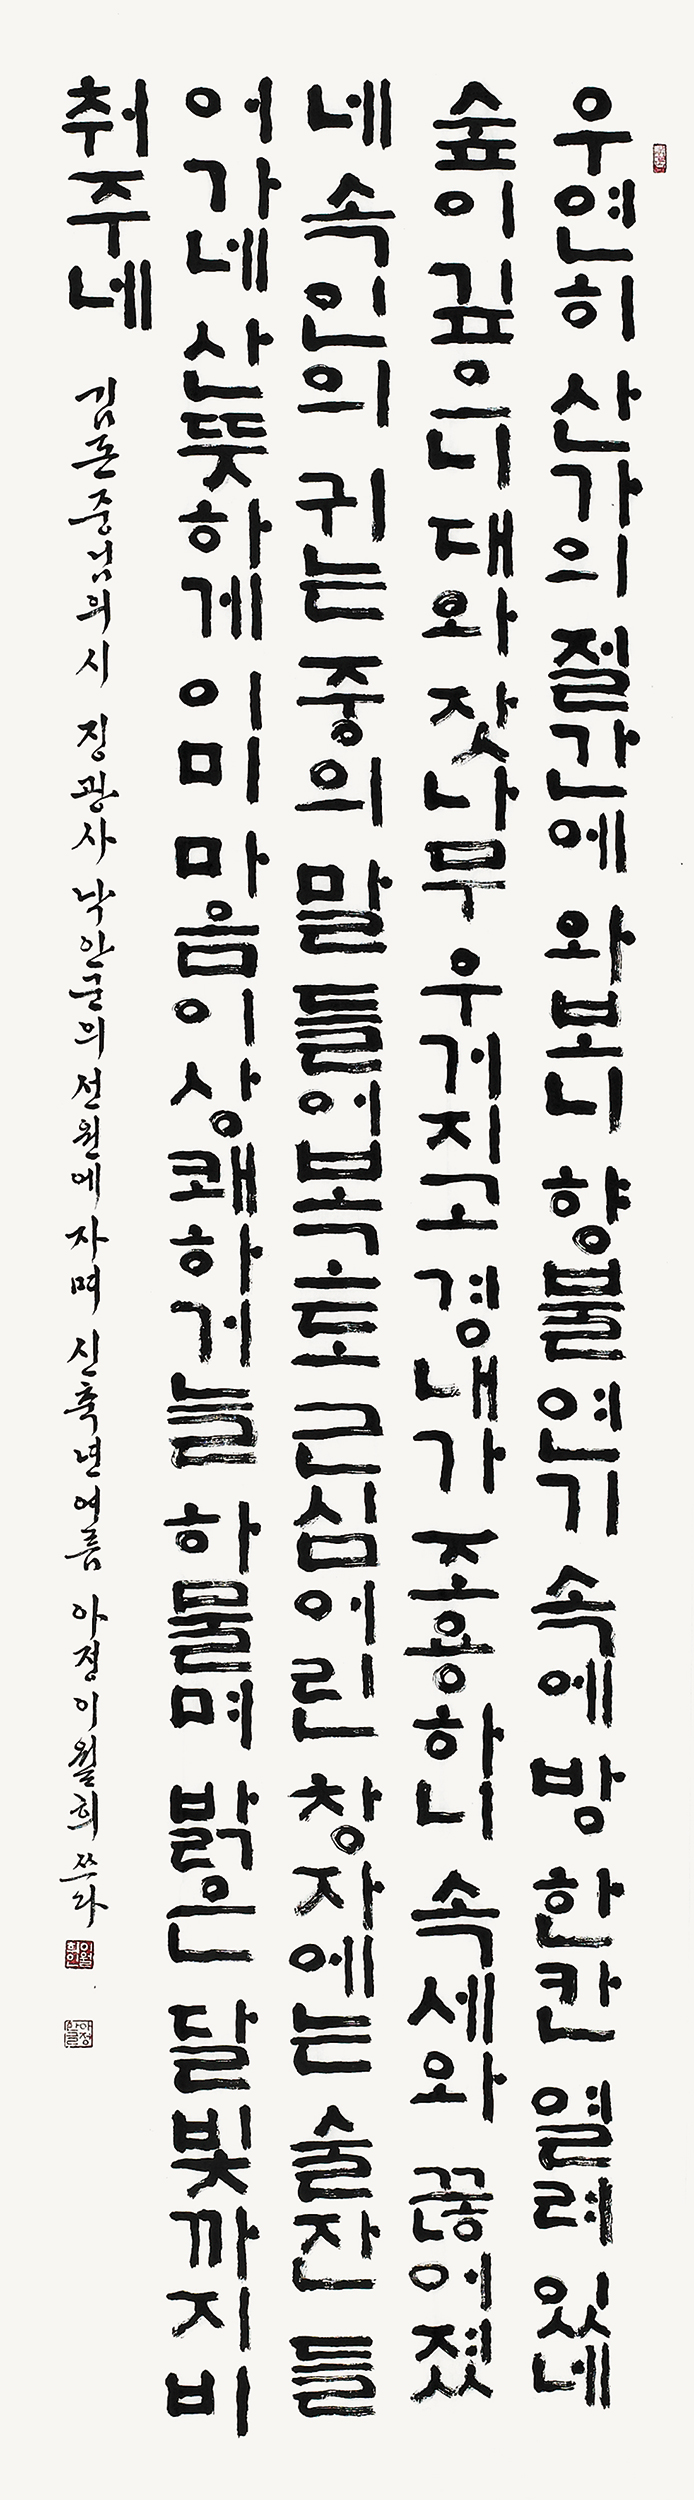 우연히 산가의 절간에 와보니 향불 연기 속에 방 한칸 열려 있네
숲이 깊으니 대와 잣나무 우거지고 경내가 조용하니 속세와 끊어졌
네 속인의 귀는 중의 말 들어보고 또 근심어린 창자에는 술잔 들
어가네 산뜻하게 이미 마음이 상쾌하거늘 하물며 밝은 달빛까지 비
춰주네
김돈중님의 시 정광사 낙안군의 선원에 자며 신축년 여름 아정 이월희 쓰다